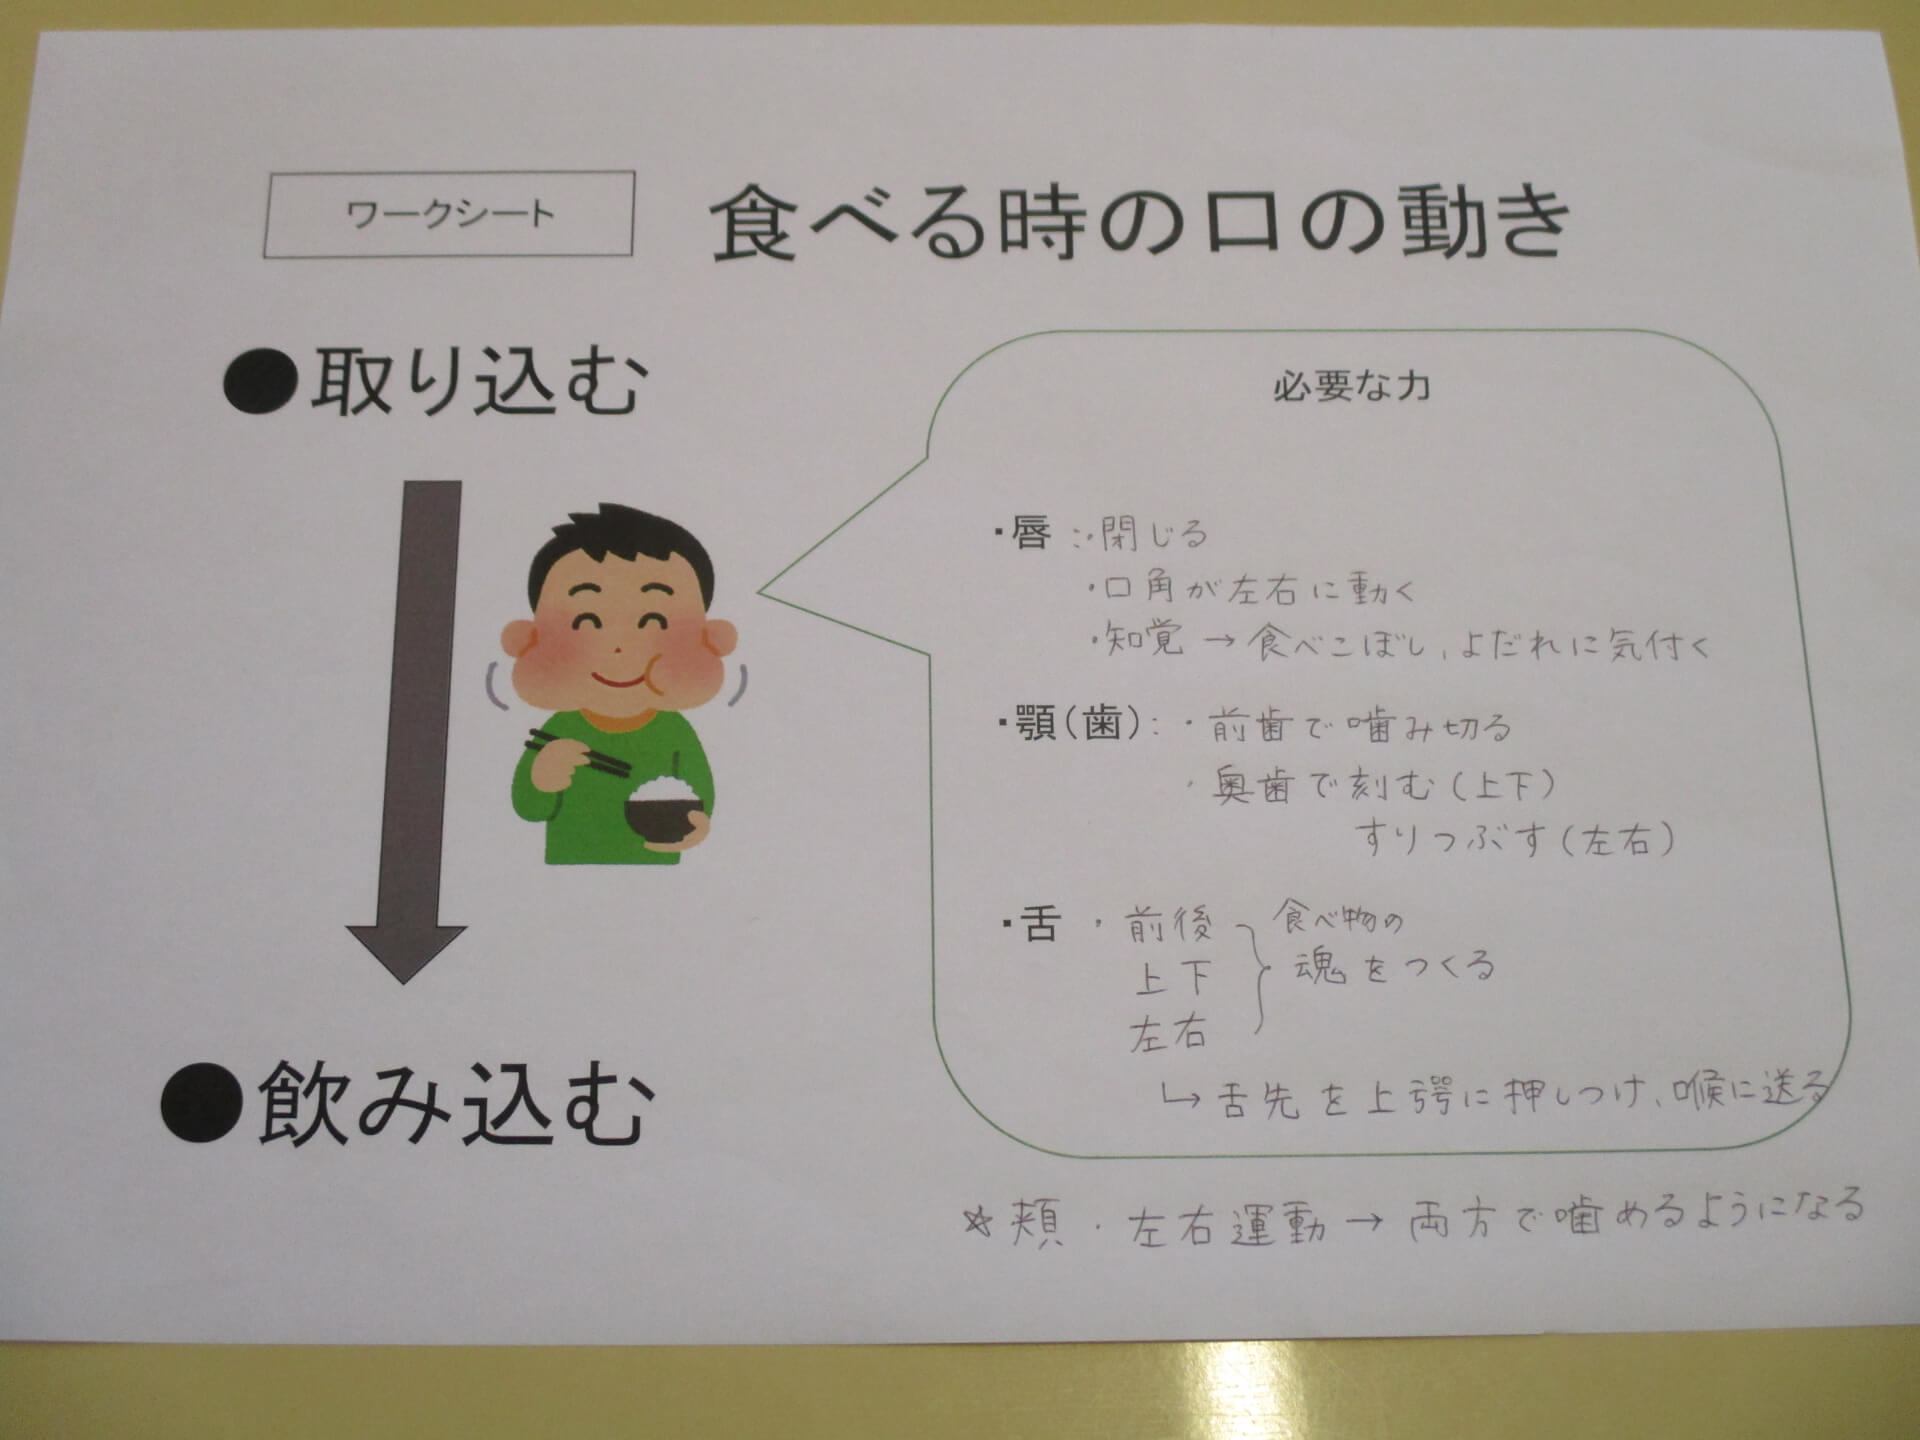 ワークシート
食べる時の口の動き
●取り込む
必要な力
・唇:・閉じる
・口角が左右に動く
・知覚→食べこぼし、よだれに気付く
・顎(歯):・前歯で噛み切る
・奥歯で刻む(上下)
すりつぶす(左右)
・舌・前後
上下
左右
食べ物の
魂をつくる
↳舌先を上顎に押しつけ、喉に送る
●飲み込む
☆頬・左右運動→両方で噛めるようになる